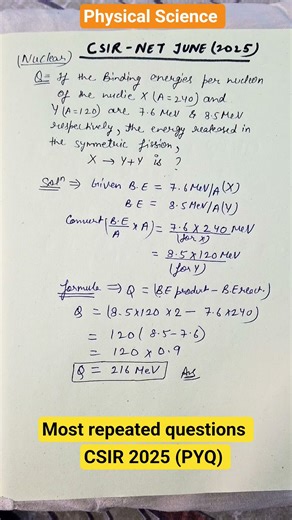 Physical Science
(Nuclear) CSIR-NET JUNE (2025)
Q= If the Binding energies per nucleon
of the nuclie X (A=240) and
Y (A=120) are 7.6 MeV & 8.5 MeV
respectively, the energy released in
the symmetric fission,
X → Y+Y is ?
Solⁿ ⇒ Given B.E = 7.6 MeV/A (X)
BE = 8.5 MeV/A (Y)
Convert (B.E/A × A) = 7.6 × 240 MeV
(for X)
= 8.5 × 120 MeV
(for Y)
formula ⇒ Q = (BE product - B.E react.)
Q = (8.5×120×2 - 7.6×240)
= 120 (8.5-7.6)
= 120 × 0.9
Q = 216 MeV Ans
Most repeated questions
CSIR 2025 (PYQ)